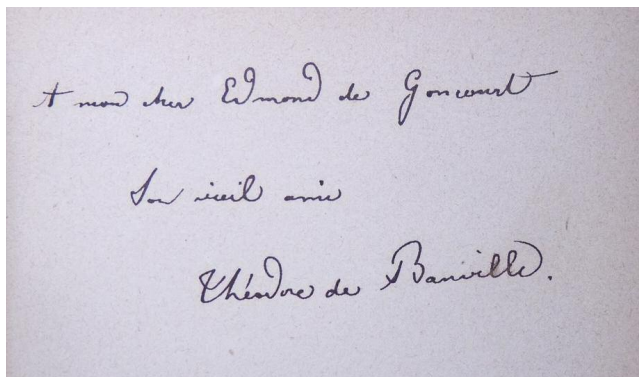 A mon cher Edmond de Goncourt
Son vieil ami
Théodore de Banville.